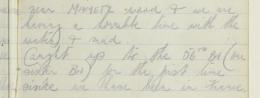 near MAMETZ wood & we are
having a terrible time with the
water & mud.
Caught up to the 56th Bn (our
sister Bn) for the first time
since we have been in France.